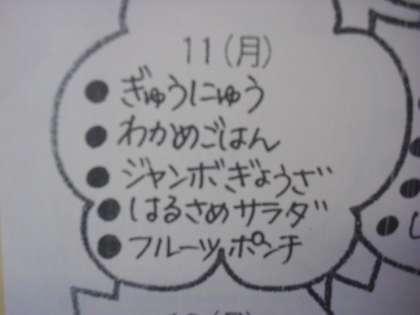 11(月)
● ぎゅうにゅう
● わかめごはん
● ジャンボぎょうざ
● はるさめサラダ
● フルーツポンチ